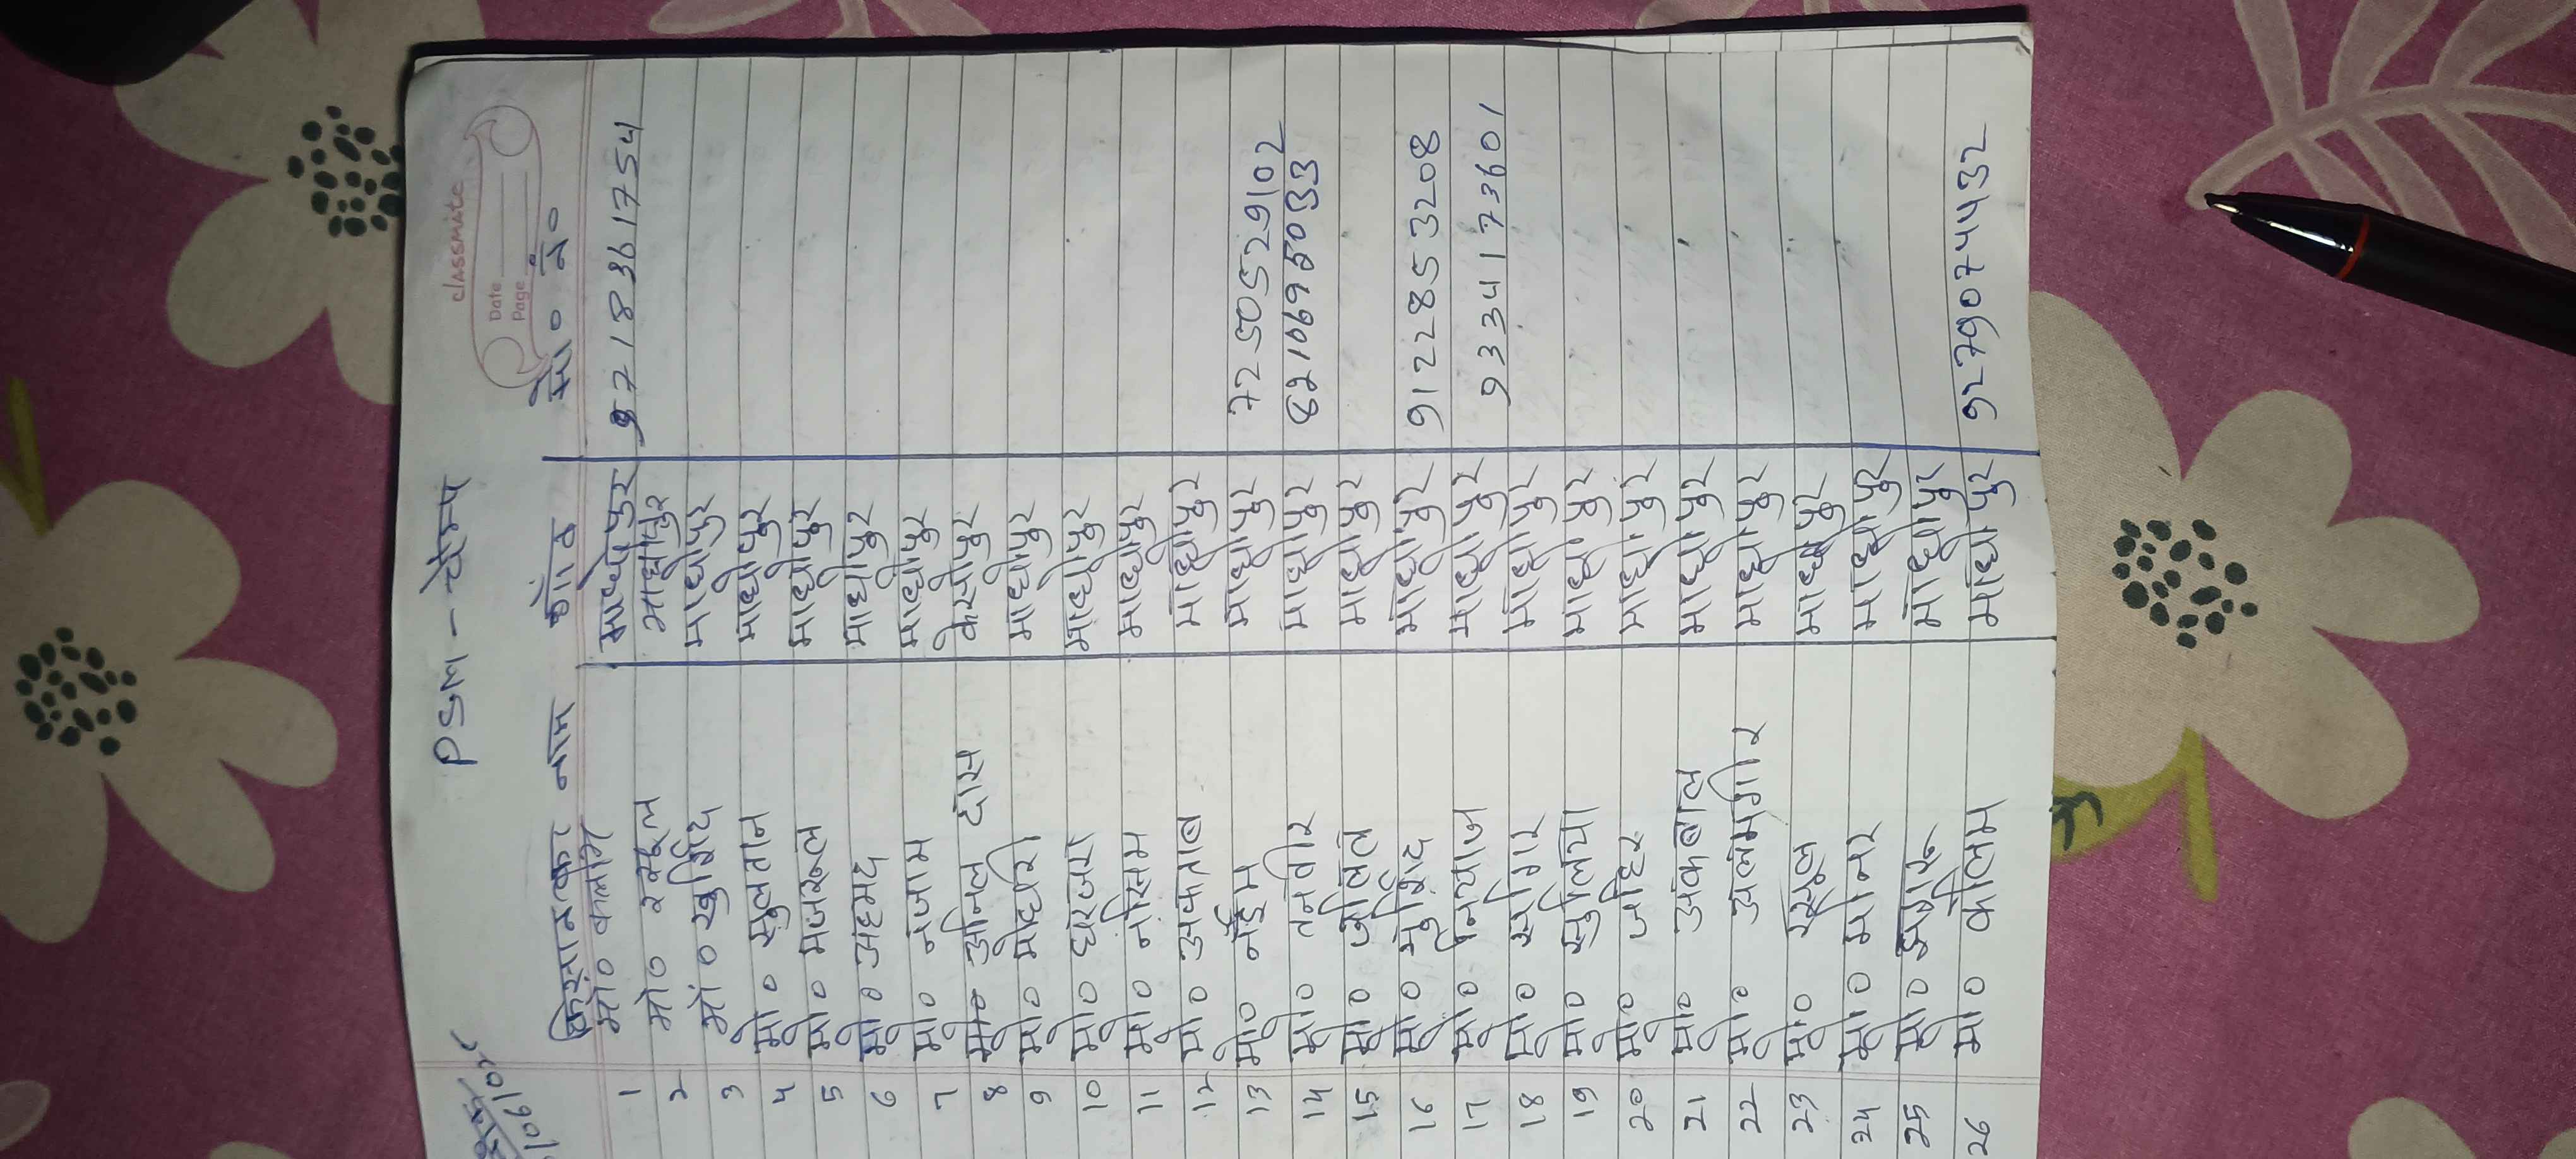 classmate
Date
Page
PSM - कैम्प
किसान का नाम गाँव मो० नं०
1 मो० कलाम माधोपुर 9718361754
2 मो० रसूल माधोपुर
3 मो० खुर्शिद माधोपुर
4 मो० सुलतान माधोपुर
5 मो० मजरूल माधोपुर
6 मो० अहमद माधोपुर
7 मो० नजाम माधोपुर
8 अनिल दास केसोपुर
9 मो० माधोपुर
10 मो० माधोपुर
11 मो० नसिम माधोपुर
12 मो० अफताब माधोपुर
13 मो० नईम माधोपुर 7250529102
14 मो० तनवीर माधोपुर 8210695033
15 मो० जलिल माधोपुर
16 मो० मुर्शिद माधोपुर 9122853208
17 मो० नियाज माधोपुर 9334173601
18 मो० सगिर माधोपुर
19 मो० माधोपुर
20 मो० जहिर माधोपुर
21 मो० अकबाल माधोपुर
22 मो० अलमगीर माधोपुर
23 मो० रसूल माधोपुर
24 मो० माधोपुर
25 मो० माधोपुर
26 मो० कलिम माधोपुर 9279074432